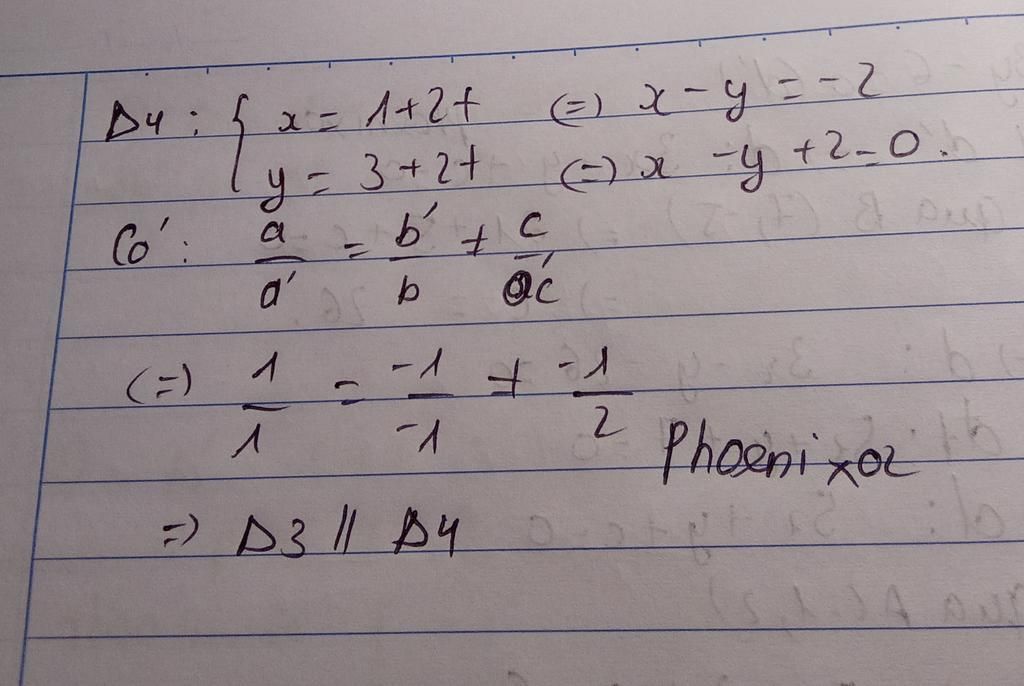 Δ4 : { x = 1 + 2t (=) x - y = -2
y = 3 + 2t (=) x - y + 2 = 0.
Có : a/a' = b'/b ≠ c/c'
(=) 1/1 = -1/-1 ≠ -1/2
Phoenix02
=) Δ3 // Δ4